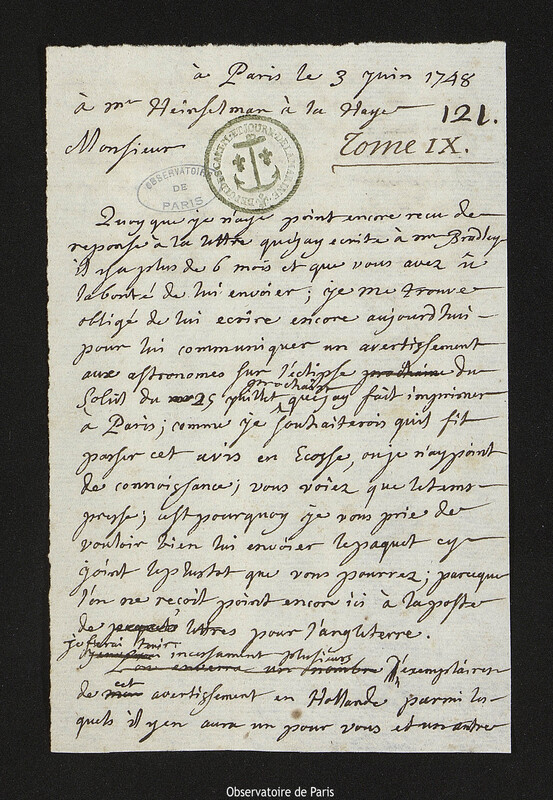 à Paris le 3 Juin 1748
à mr Heinselman à la Haye
121.
Monsieur
Tome IX.
OBSERVATOIRE
DE
PARIS
Quoy que je n'aye point encore recu de
reponse à la lettre que j'ay ecrite à mr Bradley
il y a plus de 6 mois et que vous avez û
la bonté de lui envoier; je me trouve
obligé de lui ecrire encore aujourd'hui
pour lui communiquer un avertissement
aux astronomes sur l'éclipse prochaine du
Soleil du 25 juillet prochain que j'ay fait imprimer
à Paris; comme je souhaiterois qu'il fit
passer cet avis en Ecosse, ou je n'ay point
de connoissance; vous voiez que le tems
presse; c'est pourquoy je vous prie de
vouloir bien lui envoier le paquet cy
joint le plustot que vous pourrez; parceque
l'on ne recoit point encore ici à la poste
de lettres pour l'angleterre.
je ferai tenir incessament plusieurs exemplaires
de cet avertissement en Hollande parmi les
quels il y en aura un pour vous et un autre
Observatoire de Paris